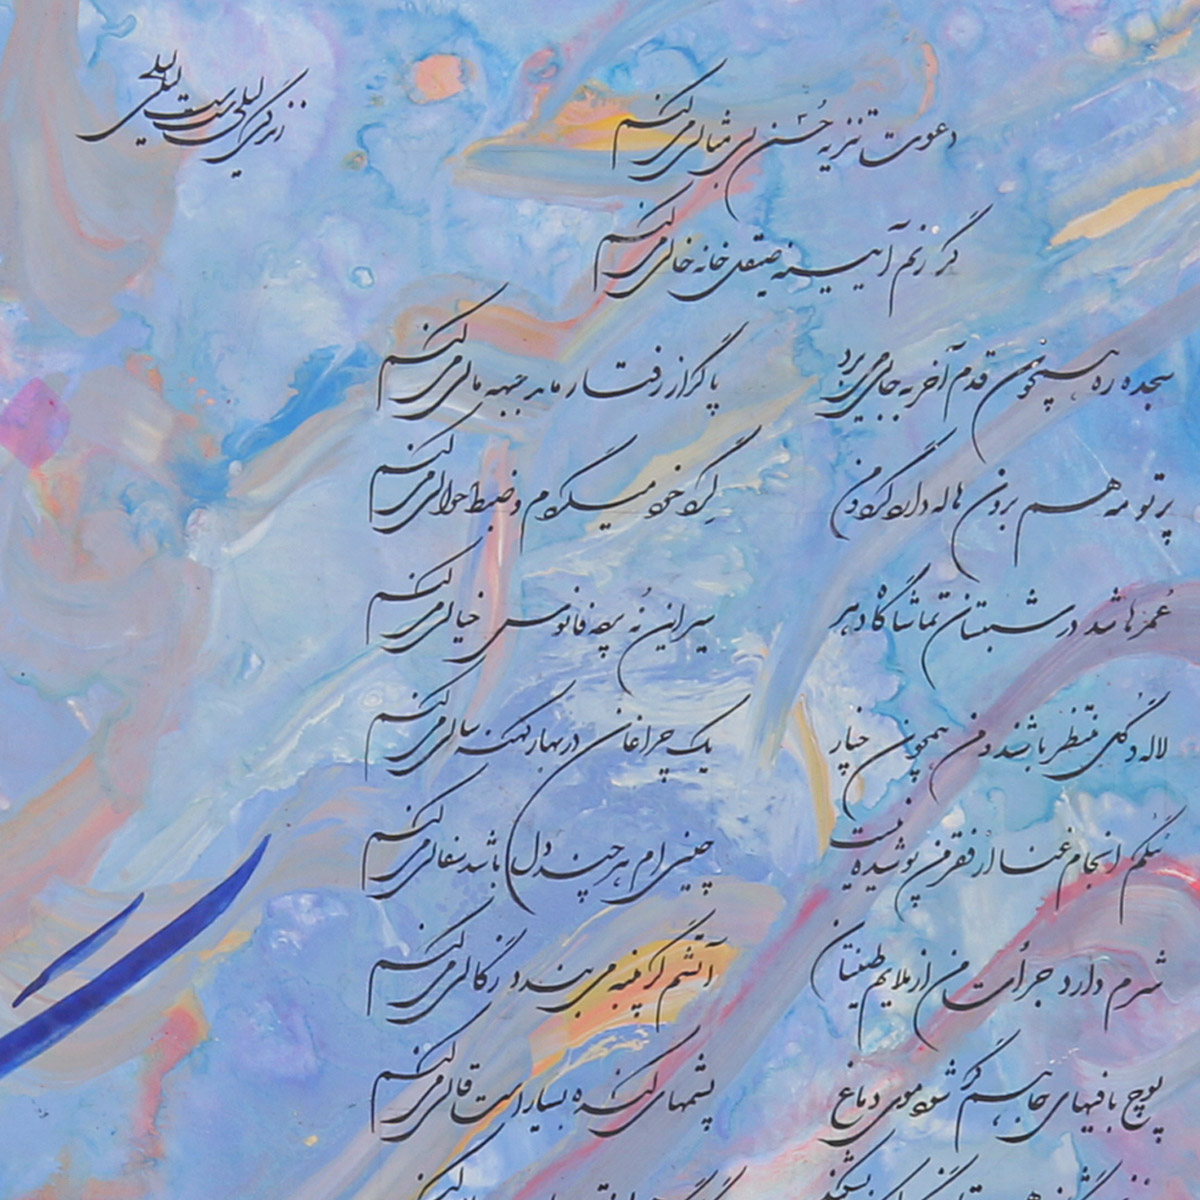 زندگی لیلی‌ست
دعوت تنزیه حُسن بی مثالی می کنم
گر زنم آیینه صیقل خانه خالی می کنم
سجده ره همچون قدم آخر به جایی می برد پا گر از رفتار ماند جبهه مالی می کنم
پرتو مه هم برون هاله دارد گرد من گرد خود میگردم و ضبط حوالی می کنم
عُمرها شد در شبستان تماشاگاه دهر سیر این نُه بچه فانوس خیالی می کنم
لاله و گل منتظر باشند و من همچون چنار یک چراغان در بهار کهنه سالی می کنم
انجام غنا از فقر من پوشیده نیست چینی ام هر چند دل باشد سفالی می کنم
شرم دارد جرأت من از ملایم طینتان آتشم گر پنبه می بیند زگالی می کنم
پوچ بافیهای جاهم گر شود موی دماغ پشمهای کنده بسیار است قالی می کنم